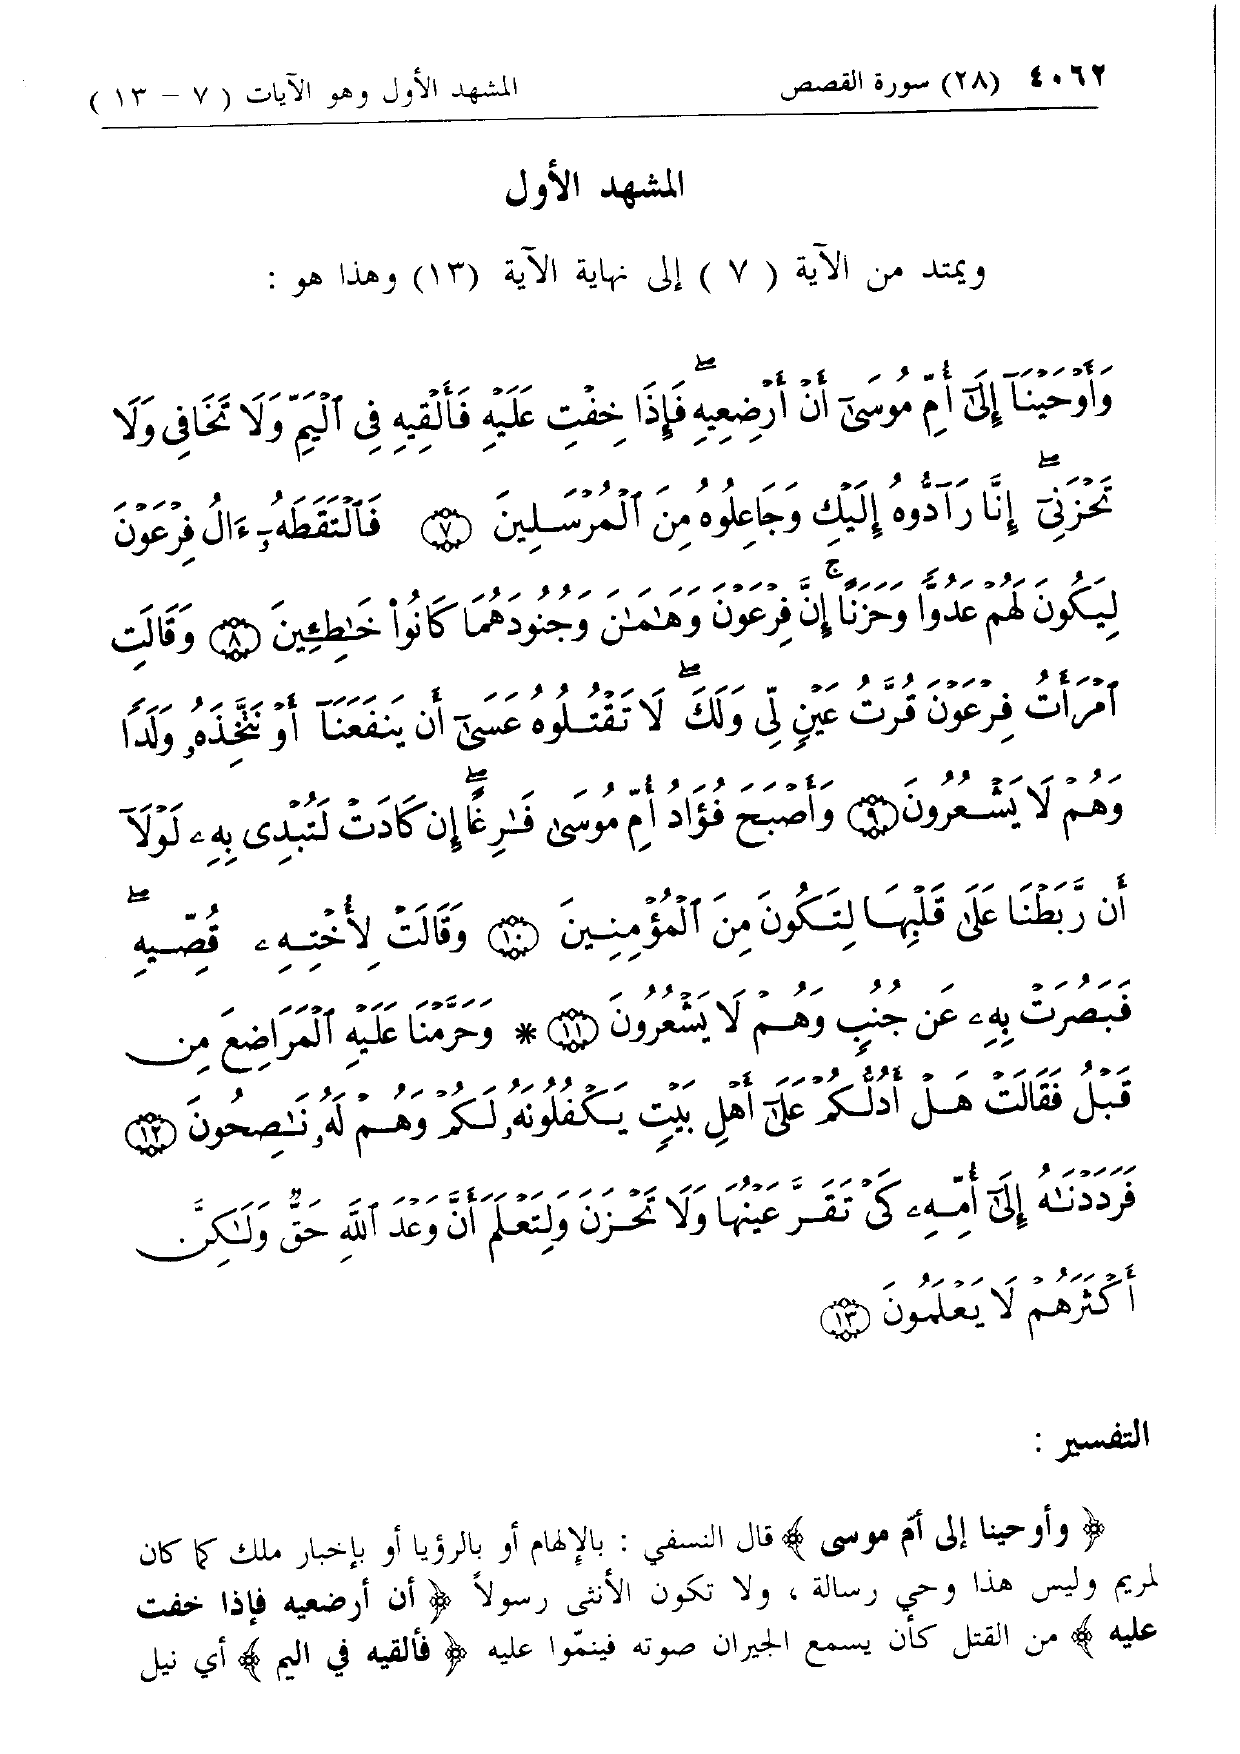 ٤٠٦٢ (٢٨) سورة القصص المشهد الأول وهو الآيات ( ٧ – ١٣ )
المشهد الأول
ويمتد من الآية ( ٧ ) إلى نهاية الآية (١٣) وهذا هو :
وَأَوْحَيْنَآ إِلَىٰٓ أُمِّ مُوسَىٰٓ أَنْ أَرْضِعِيهِ ۖ فَإِذَا خِفْتِ عَلَيْهِ فَأَلْقِيهِ فِى ٱلْيَمِّ وَلَا تَخَافِى وَلَا
تَحْزَنِىٓ ۖ إِنَّا رَآدُّوهُ إِلَيْكِ وَجَاعِلُوهُ مِنَ ٱلْمُرْسَلِينَ ۝٧ فَٱلْتَقَطَهُۥٓ ءَالُ فِرْعَوْنَ
لِيَكُونَ لَهُمْ عَدُوًّا وَحَزَنًا ۗ إِنَّ فِرْعَوْنَ وَهَـٰمَـٰنَ وَجُنُودَهُمَا كَانُوا۟ خَـٰطِـِٔينَ ۝٨ وَقَالَتِ
ٱمْرَأَتُ فِرْعَوْنَ قُرَّتُ عَيْنٍ لِّى وَلَكَ ۖ لَا تَقْتُلُوهُ عَسَىٰٓ أَن يَنفَعَنَآ أَوْ نَتَّخِذَهُۥ وَلَدًا
وَهُمْ لَا يَشْعُرُونَ ۝٩ وَأَصْبَحَ فُؤَادُ أُمِّ مُوسَىٰ فَـٰرِغًا ۖ إِن كَادَتْ لَتُبْدِى بِهِۦ لَوْلَآ
أَن رَّبَطْنَا عَلَىٰ قَلْبِهَا لِتَكُونَ مِنَ ٱلْمُؤْمِنِينَ ۝١٠ وَقَالَتْ لِأُخْتِهِۦ قُصِّيهِ ۖ
فَبَصُرَتْ بِهِۦ عَن جُنُبٍ وَهُمْ لَا يَشْعُرُونَ ۝١١ * وَحَرَّمْنَا عَلَيْهِ ٱلْمَرَاضِعَ مِن
قَبْلُ فَقَالَتْ هَلْ أَدُلُّكُمْ عَلَىٰٓ أَهْلِ بَيْتٍ يَكْفُلُونَهُۥ لَكُمْ وَهُمْ لَهُۥ نَـٰصِحُونَ ۝١٢
فَرَدَدْنَـٰهُ إِلَىٰٓ أُمِّهِۦ كَىْ تَقَرَّ عَيْنُهَا وَلَا تَحْزَنَ وَلِتَعْلَمَ أَنَّ وَعْدَ ٱللَّهِ حَقٌّ وَلَـٰكِنَّ
أَكْثَرَهُمْ لَا يَعْلَمُونَ ۝١٣
التفسير :
﴿ وأوحينا إلى أمّ موسى ﴾ قال النسفي : بالإلهام أو بالرؤيا أو بإخبار ملك كما كان
لمريم وليس هذا وحي رسالة ، ولا تكون الأنثى رسولاً ﴿ أن أرضعيه فإذا خفت
عليه ﴾ من القتل كأن يسمع الجيران صوته فينمّوا عليه ﴿ فألقيه في اليم ﴾ أي نيل